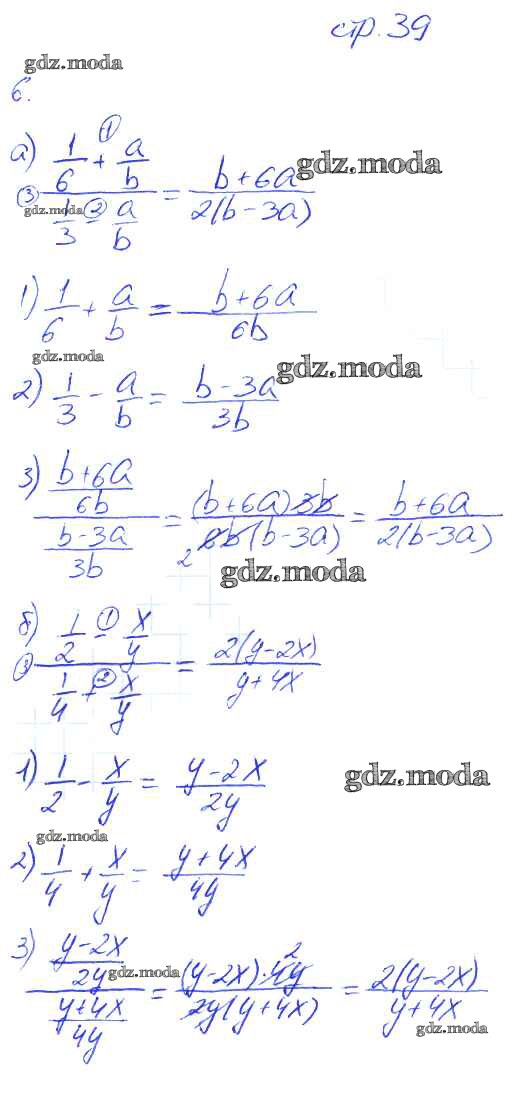 стр. 39
gdz.moda
6.
а) (1/6 + a/b) / (1/3 - a/b) = (b+6a) / (2(b-3a))
① ② ③
gdz.moda
gdz.moda
1) 1/6 + a/b = (b+6a) / 6b
gdz.moda
gdz.moda
2) 1/3 - a/b = (b-3a) / 3b
3) ((b+6a)/6b) / ((b-3a)/3b) = ((b+6a) 3b) / (6b(b-3a)) = (b+6a) / (2(b-3a))
2
gdz.moda
б) (1/2 - x/y) / (1/4 + x/y) = 2(y-2x) / (y+4x)
① ② ③
1) 1/2 - x/y = (y-2x) / 2y
gdz.moda
gdz.moda
2) 1/4 + x/y = (y+4x) / 4y
3) ((y-2x)/2y) / ((y+4x)/4y) = ((y-2x)·4y) / (2y(y+4x)) = 2(y-2x) / (y+4x)
2
gdz.moda
gdz.moda